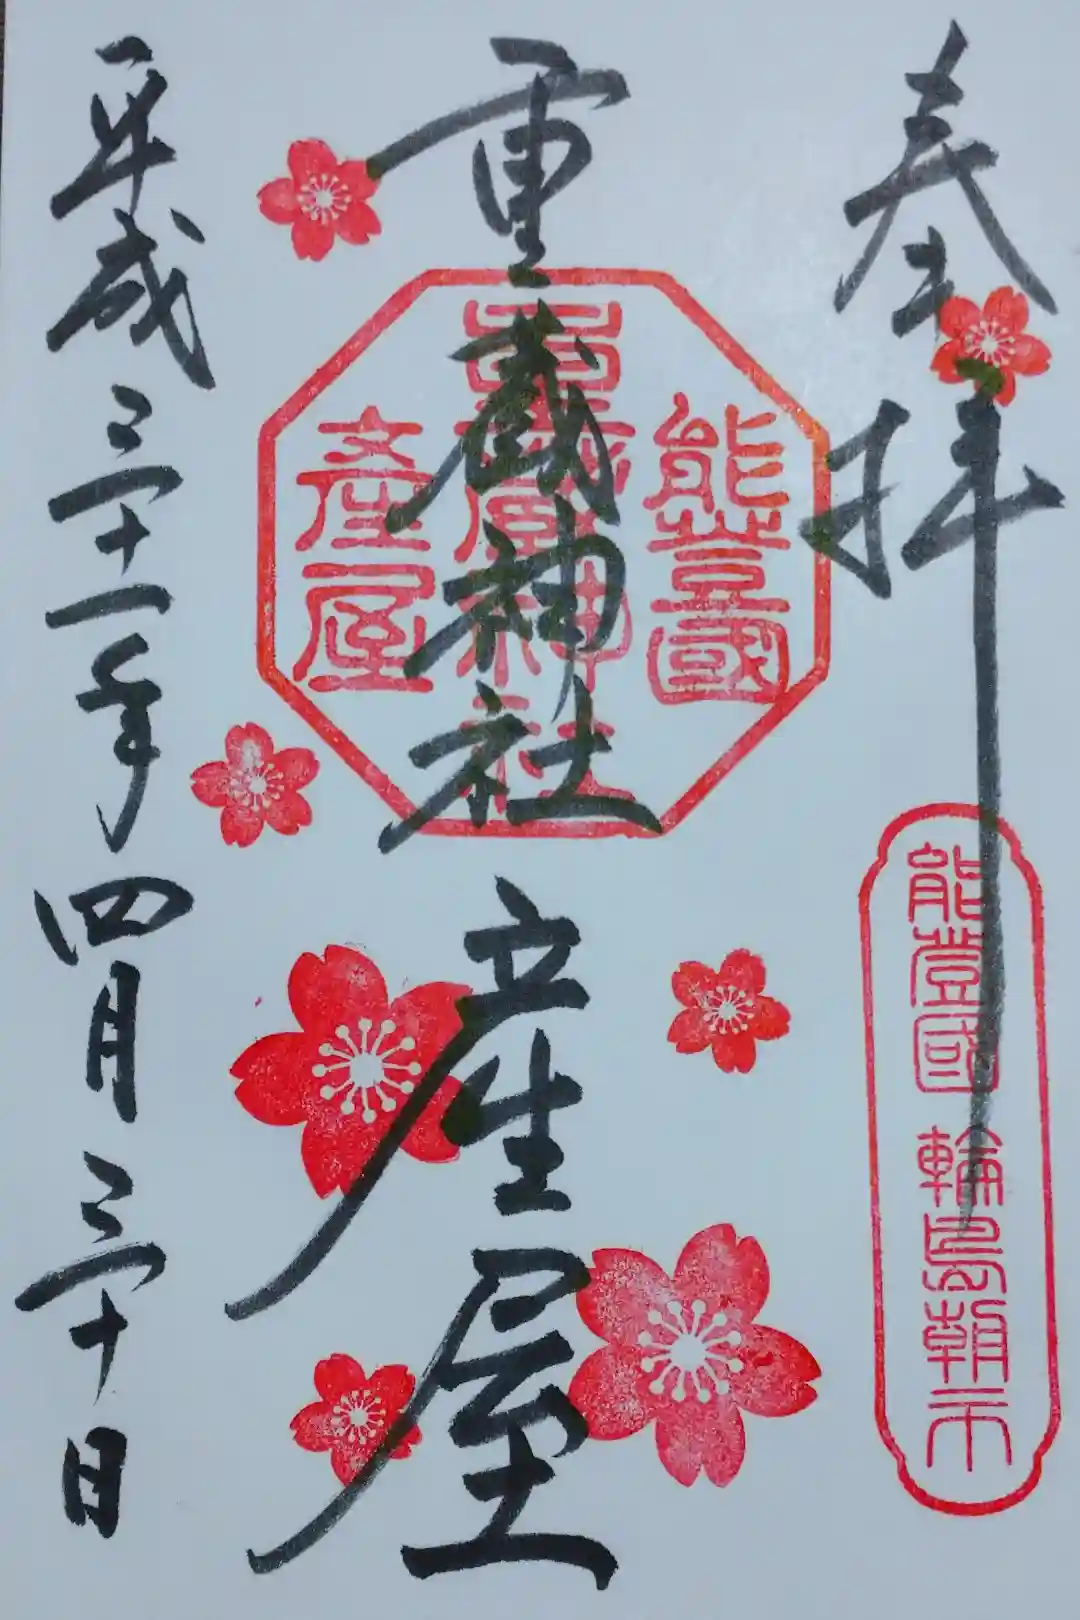 奉拝
能登國 輪島朝市
重蔵神社 産屋
能登國
重蔵神社
産屋
平成三十一年四月三十日